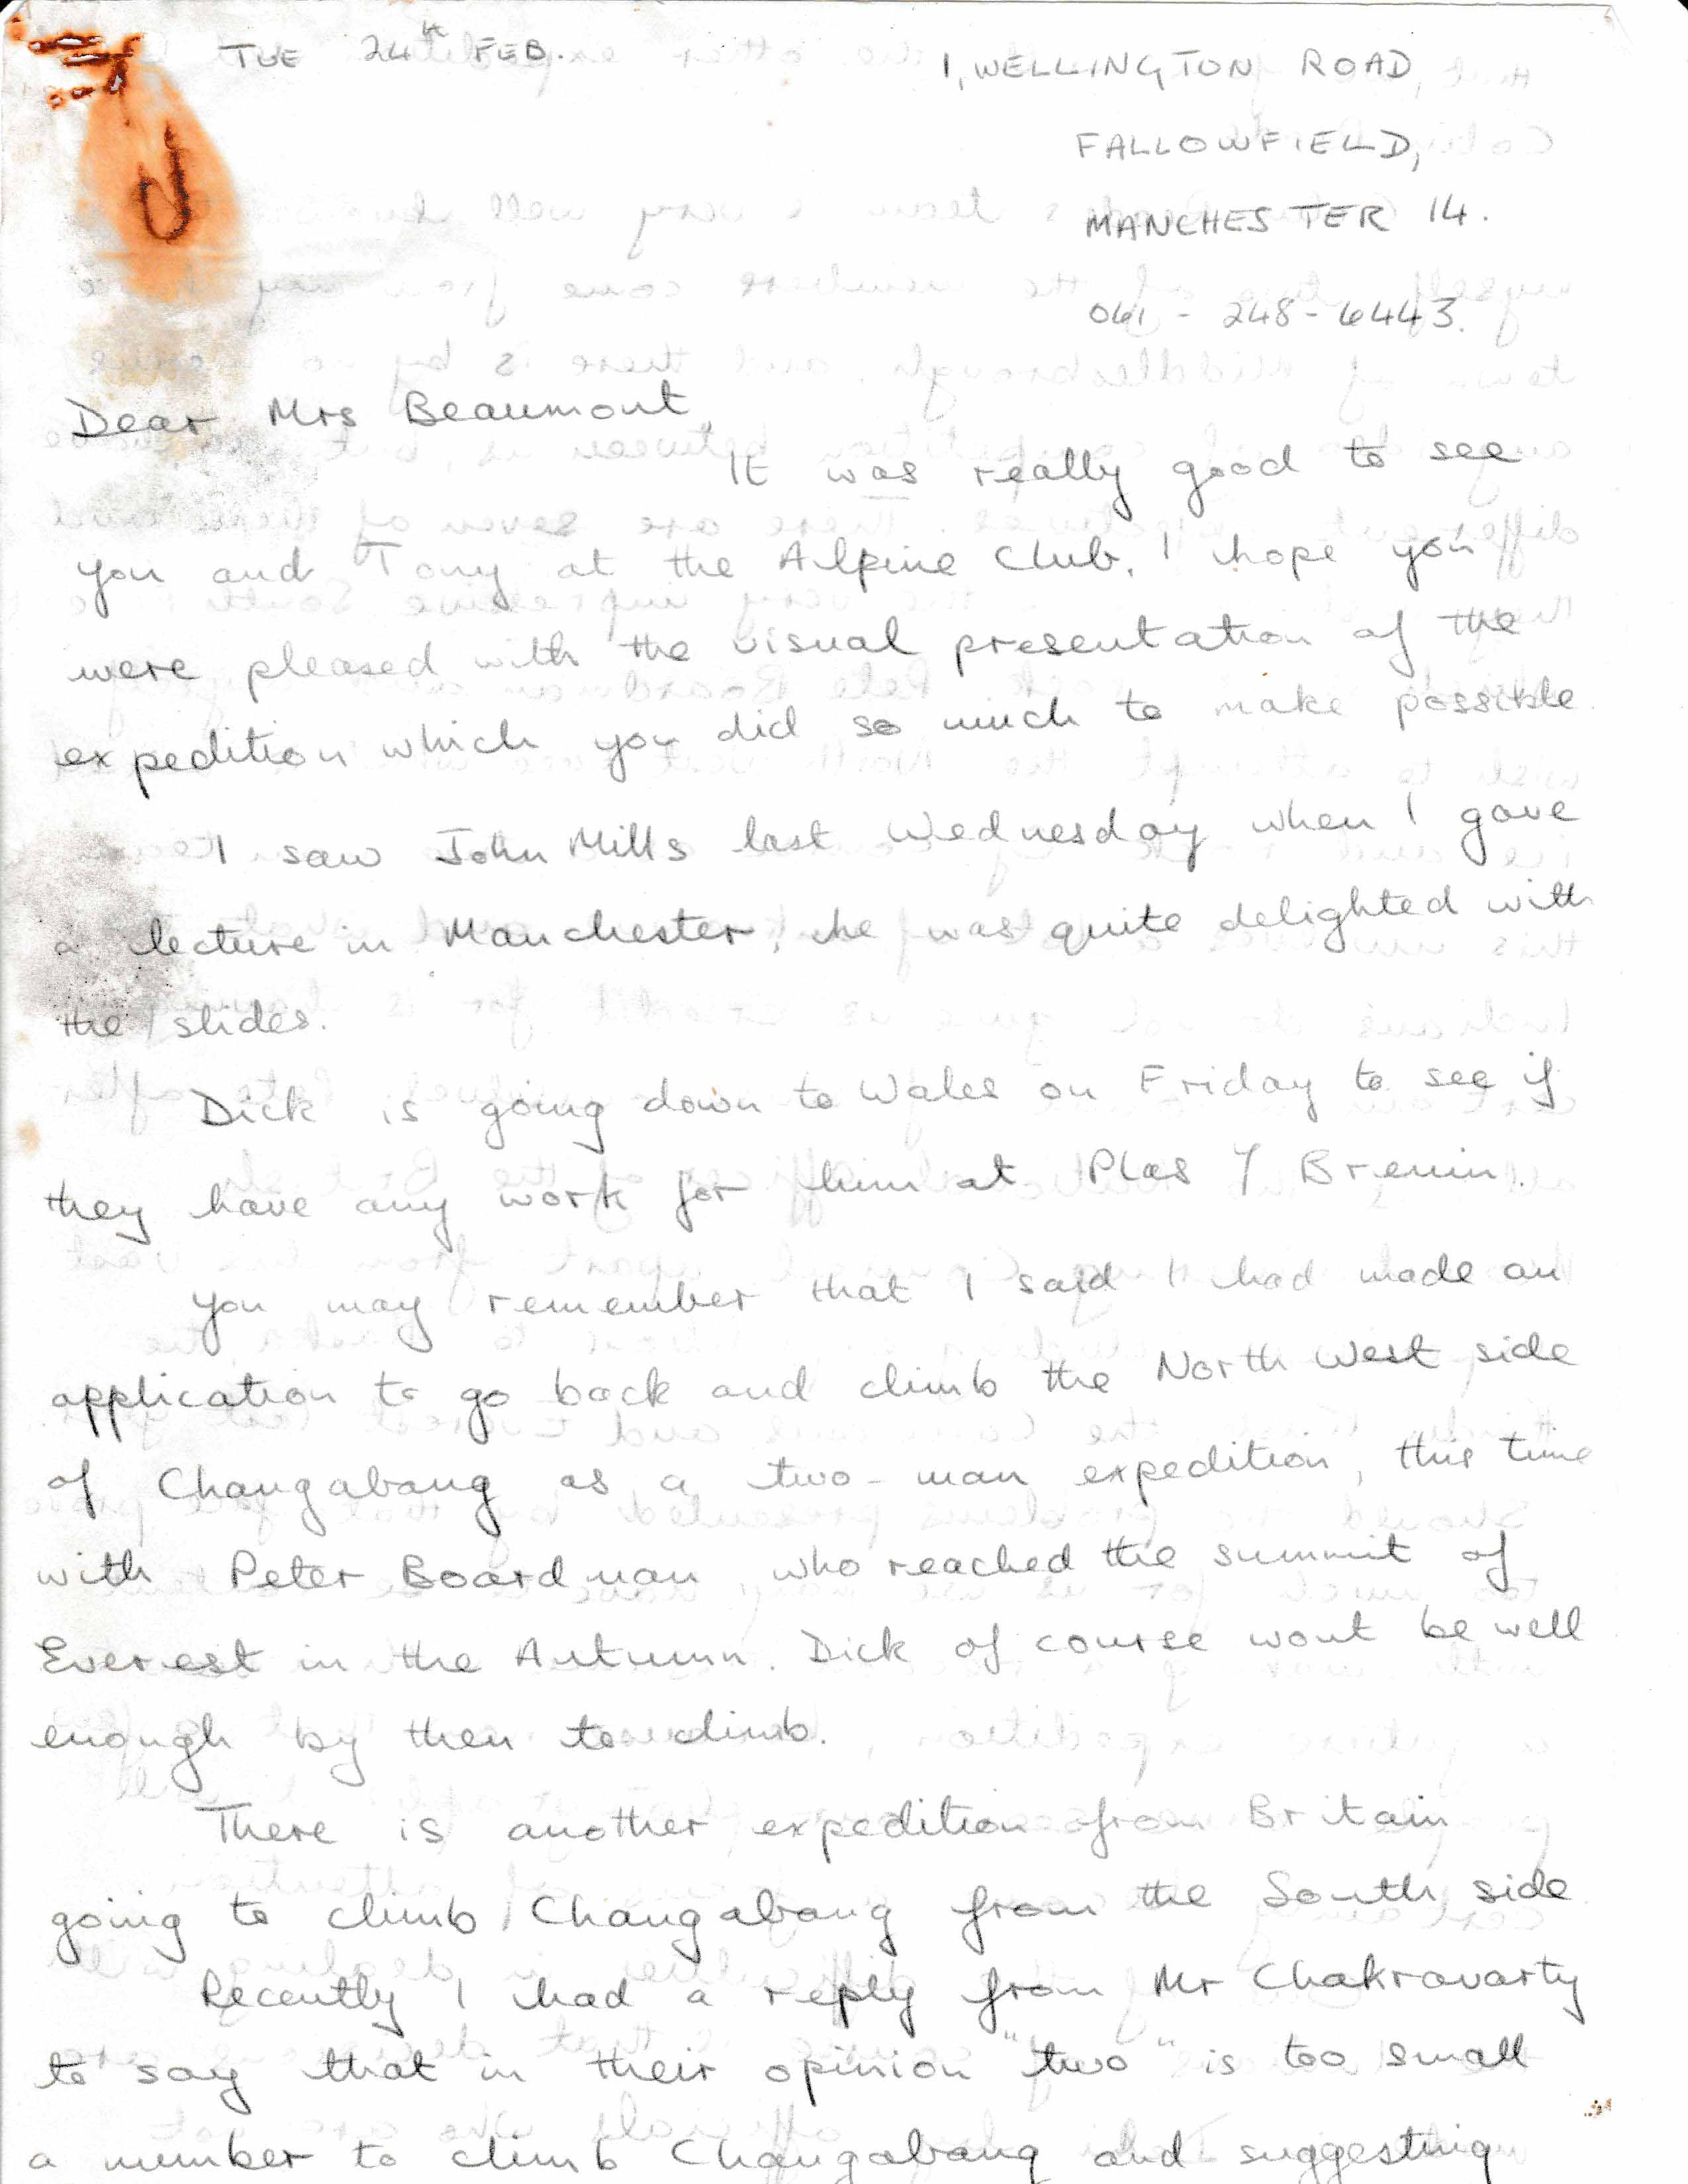 TUE 24th FEB.
1, WELLINGTON ROAD
FALLOWFIELD,
MANCHESTER 14.
061 - 248 - 6443.
Dear Mrs Beaumont,
It was really good to see
you and Tony at the Alpine Club. I hope you
were pleased with the visual presentation of the
expedition which you did so much to make possible.
I saw John Mills last Wednesday when I gave
a lecture in Manchester, he was quite delighted with
the slides.
Dick is going down to Wales on Friday to see if
they have any work for him at Plas Y Brenin.
You may remember that I said I had made an
application to go back and climb the North West side
of Changabang as a two-man expedition, this time
with Peter Boardman, who reached the summit of
Everest in the Autumn. Dick of course wont be well
enough by then to climb.
There is another expedition from Britain
going to climb Changabang from the South side.
Recently I had a reply from Mr Chakravarty
to say that in their opinion "two" is too small
a number to climb Changabang and suggesting